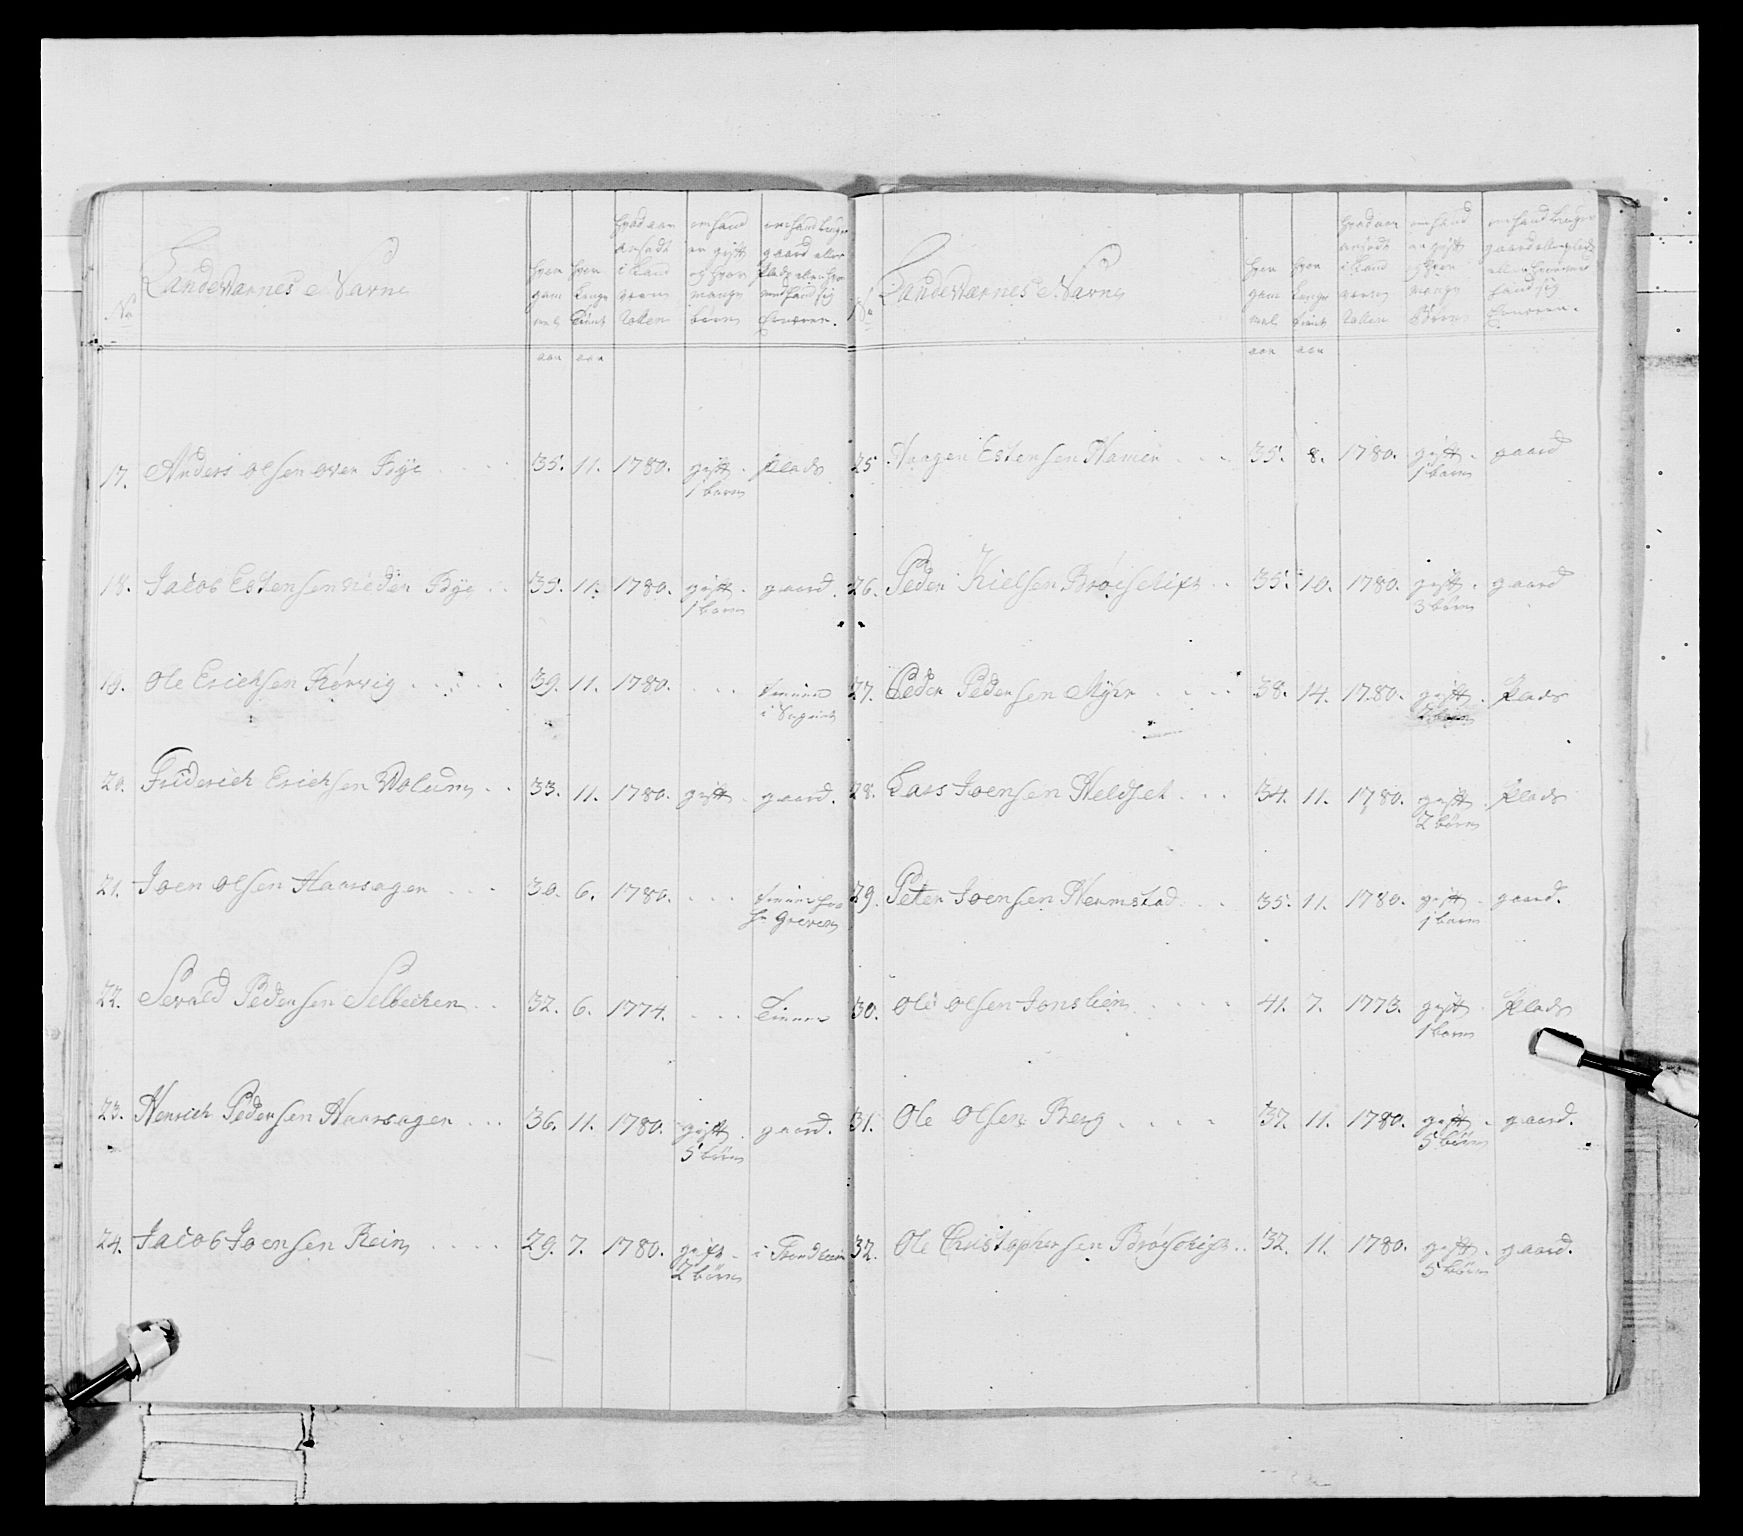 No
Landeværnes Navne
hvor
gam
mel
hvor
længe
tient
hvad aar
ansadt
i Land
værns
Rollen
om hand
er gift
og hvor
mange
børn
om hand bruger
gaard eller
plads eller hvor
med hand sig
Ernærer.
aar aar
17. Anders Olsen over Bye 35. 11. 1780. gift. plads
1 barn
18. Jacob Estensen neder Bye 35. 11. 1780. gift. gaard.
1 barn
19. Ole Erichsen Rørvig 39. 11. 1780. tiener
i
20. Friderich Erichsen Wolum 33. 11. 1780. gift. gaard.
21. Joen Olsen Haarsagen 30. 6. 1780. tiener hos
Hr Greven
22. Sevald Pedersen Selbechen 32. 6. 1774. Tiener
23. Henrich Pedersen Haarsagen 36. 11. 1780. gift. gaard.
5 børn
24. Jacob Joensen Rein 29. 7. 1780. gift. i Trondhiem
2 børn
No
Landeværnes Navne
hvor
gam
mel
hvor
længe
tient
hvad aar
ansadt
i Land
værns
Rollen
om hand
er gift
og hvor
mange
Børn
om hand bruger
gaard eller plads
eller hvormed
hand sig
Ernærer.
aar aar
25. Haagen Estensen Hamer 35. 8. 1780. gift. gaard
1 barn
26. Peder Kielsen Brøeschift 35. 10. 1780. gift. gaard
3 børn
27. Peder Pedersen Myhr 38. 14. 1780. gift. plads
2 børn
28. Lars Joensen Heldset 34. 11. 1780. gift. plads
2 børn
29. Peter Joensen Hermstad 35. 11. 1780. gift. gaard.
1 barn
30. Ole Olsen Jonslien 41. 7. 1773. gift. plads
1 barn
31. Ole Olsen Berg 37. 11. 1780. gift. gaard.
5 børn
32. Ole Christophersen Brøeschift 32. 11. 1780. gift. gaard.
5 børn